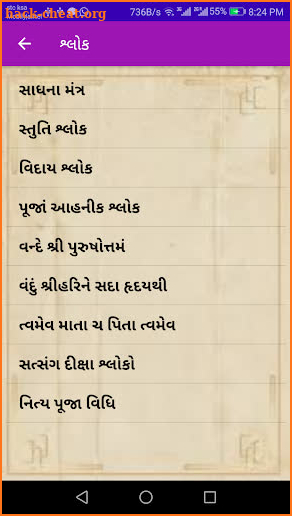 hack-cheat.org
736B/S 55% 8:24 PM
શ્લોક
સાધના મંત્ર
સ્તુતિ શ્લોક
વિદાય શ્લોક
પૂજાં આહનીક શ્લોક
વન્દે શ્રી પુરુષોત્તમં
વંદું શ્રીહરિને સદા હૃદયથી
ત્વમેવ માતા ચ પિતા ત્વમેવ
સત્સંગ દીક્ષા શ્લોકો
નિત્ય પૂજા વિધિ